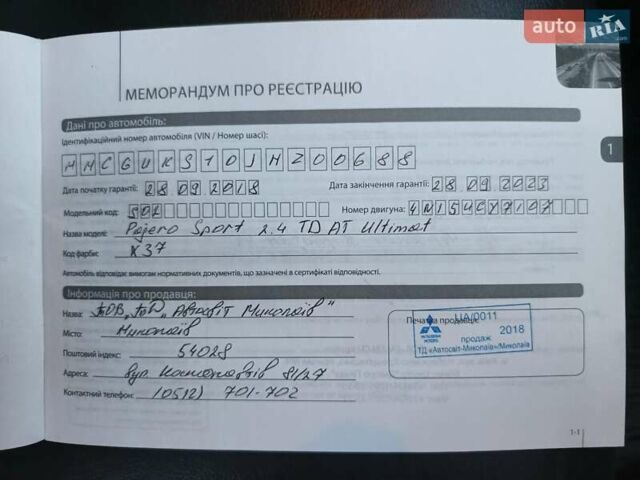 auto RIA .com
МЕМОРАНДУМ ПРО РЕЄСТРАЦІЮ
1
Дані про автомобіль:
Ідентифікаційний номер автомобіля (VIN / Номер шасі):
MMCGUKS10JHZ00688
Дата початку гарантії: 28 09 2018 Дата закінчення гарантії: 28 09 2023
Модельний код: Номер двигуна: 4N15UCY7107
Назва моделі: Pajero Sport 2.4 TD AT Ultimat
Код фарби: X37
Автомобіль відповідає вимогам нормативних документів, що зазначені в сертифікаті відповідності.
Інформація про продавця:
Назва: Автосвіт Миколаїв"
Місто: Миколаїв
Поштовий індекс: 54028
Адреса: вул. Космонавтів 81/27
Контактний телефон: (0512) 701-702
Печатка продавця:
UA/0011
MITSUBISHI MOTORS
2018
продаж
ТД «Автосвіт-Миколаїв»/Миколаїв
1-1